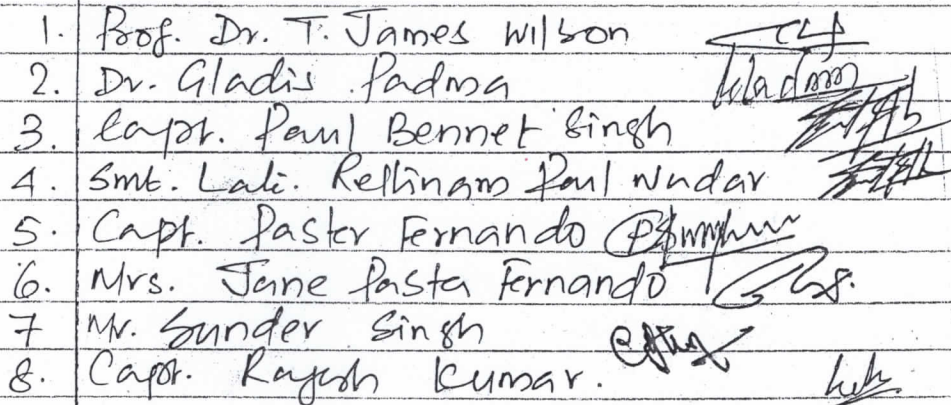 1. Prof. Dr. T. James Wilson
2. Dr. Gladis Padma
3. Capt. Paul Bennet Singh
4. Smt. Lali. Paul Nadar
5. Capt. Paster Fernando
6. Mrs. Jane Pasta Fernando
7 Mr. Sunder Singh
8. Capt. Rajesh Kumar.